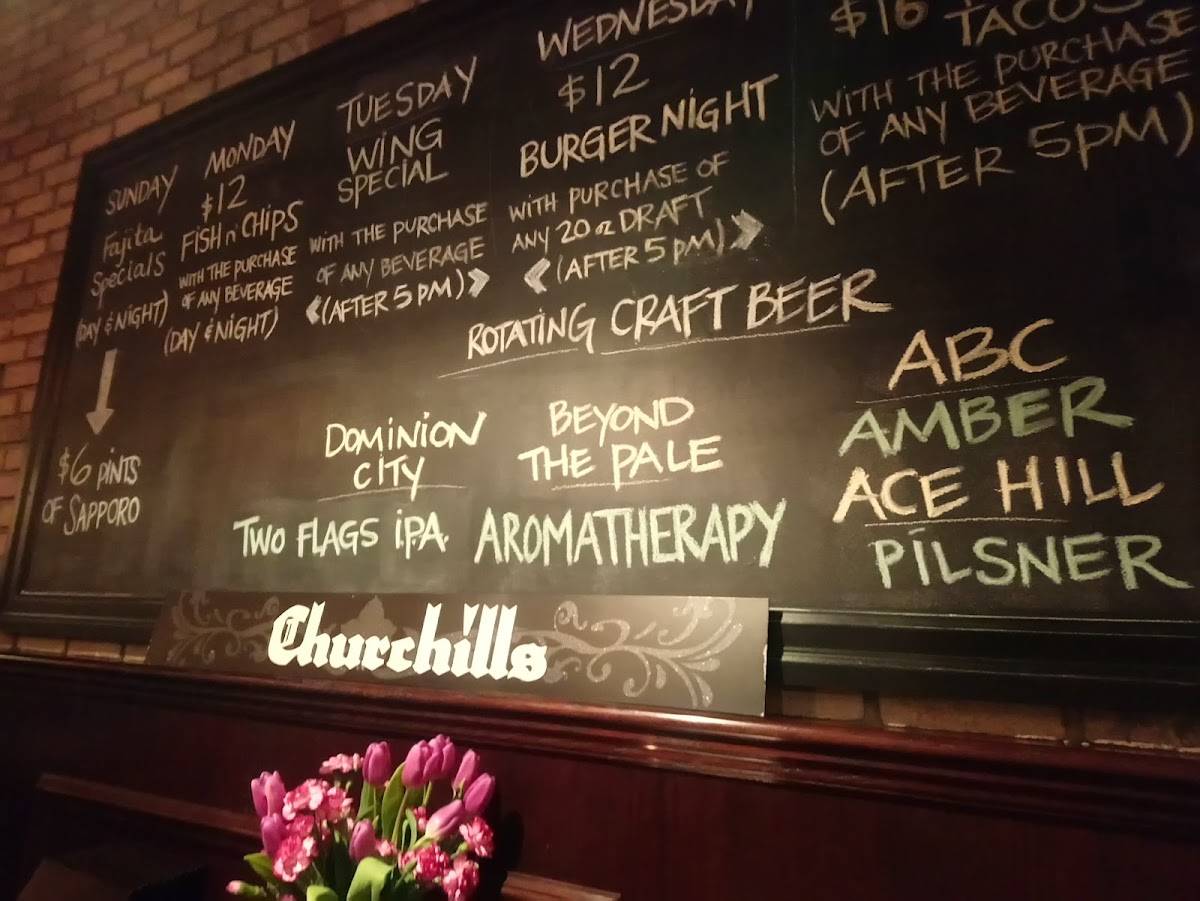 SUNDAY
Fajita
Specials
(DAY & NIGHT)
$6 PINTS
OF SAPPORO
MONDAY
$12
FISH n' CHIPS
WITH THE PURCHASE
OF ANY BEVERAGE
(DAY & NIGHT)
TUESDAY
WING
SPECIAL
WITH THE PURCHASE
OF ANY BEVERAGE
(AFTER 5 PM)
WEDNESDAY
$12
BURGER NIGHT
WITH PURCHASE OF
ANY 20 oz DRAFT
(AFTER 5 PM)
$16 TACOS
WITH THE PURCHASE
OF ANY BEVERAGE
(AFTER 5PM)
ROTATING CRAFT BEER
DOMINION
CITY
TWO FLAGS I.P.A.
BEYOND
THE PALE
AROMATHERAPY
ABC
AMBER
ACE HILL
PILSNER
Churchills